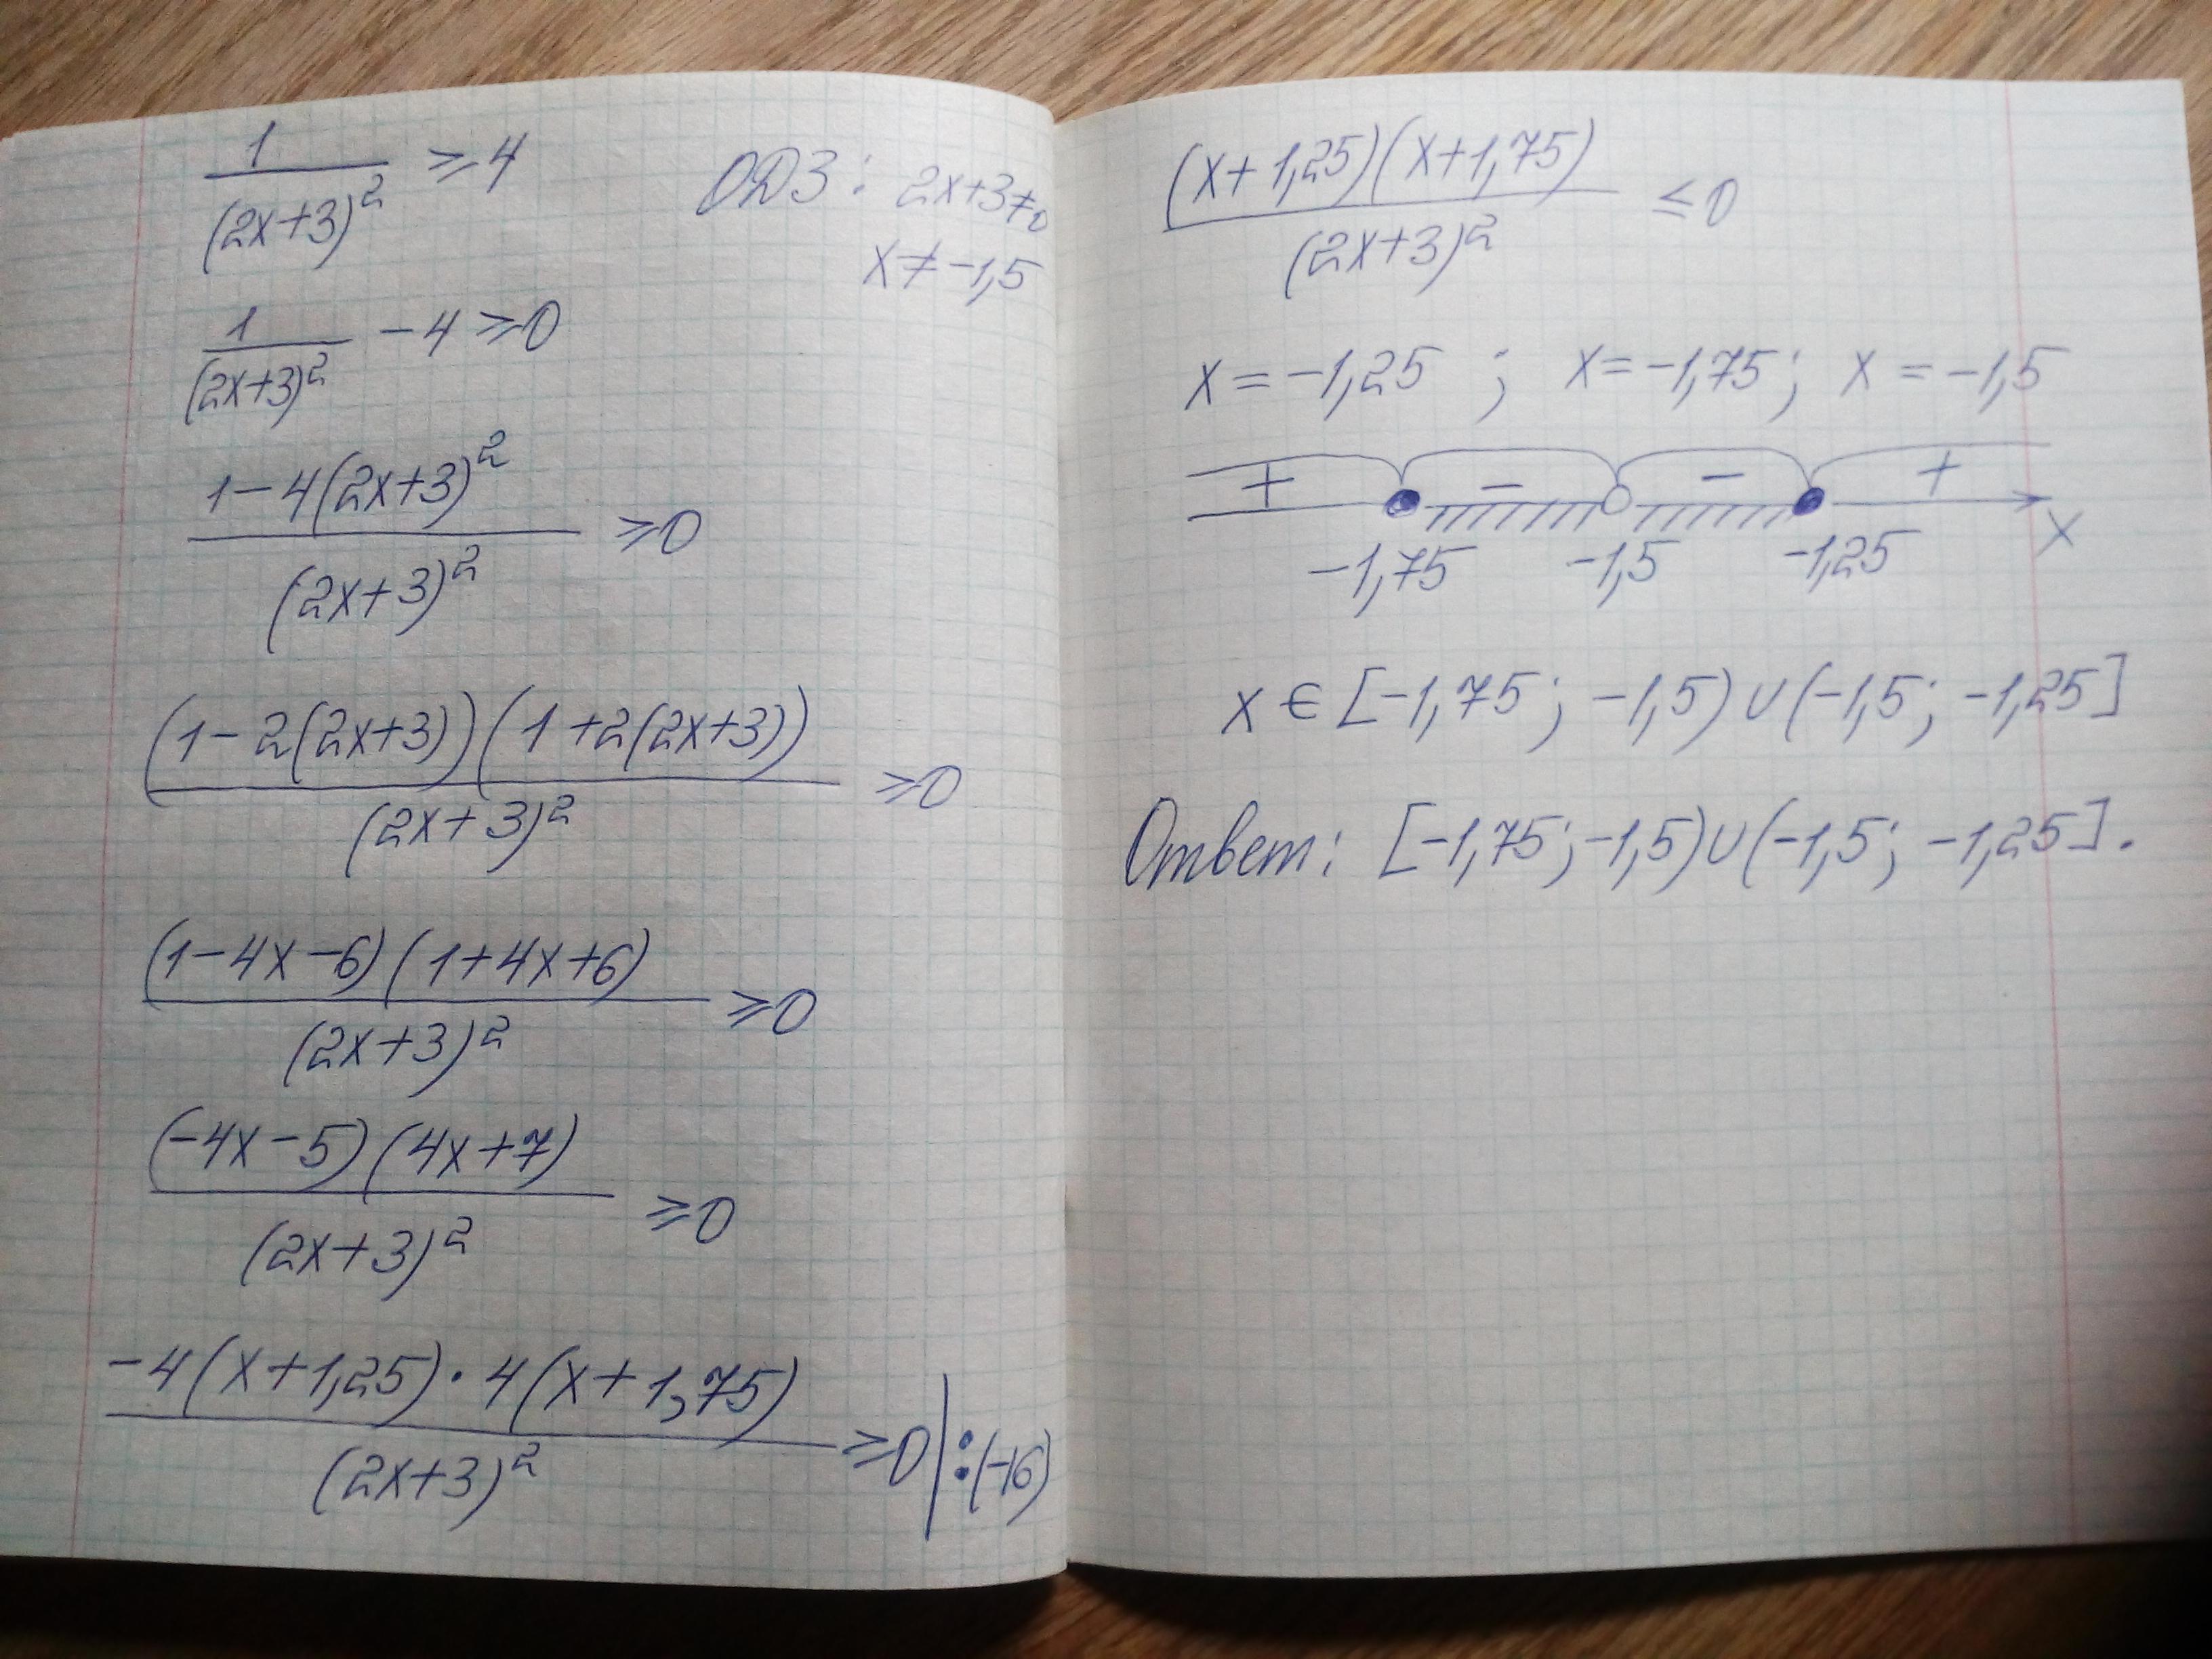 1/(2x+3)² ≥ 4
ОДЗ: 2x+3≠0
x≠-1,5
1/(2x+3)² - 4 ≥ 0
(1-4(2x+3)²)/(2x+3)² ≥ 0
((1-2(2x+3))(1+2(2x+3)))/(2x+3)² ≥ 0
((1-4x-6)(1+4x+6))/(2x+3)² ≥ 0
((-4x-5)(4x+7))/(2x+3)² ≥ 0
(-4(x+1,25)·4(x+1,75))/(2x+3)² ≥ 0 | :(-16)
((x+1,25)(x+1,75))/(2x+3)² ≤ 0
x=-1,25 ; x=-1,75; x=-1,5
+ - - +
-1,75 -1,5 -1,25 x
x∈[-1,75; -1,5)∪(-1,5; -1,25]
Ответ: [-1,75;-1,5)∪(-1,5; -1,25].